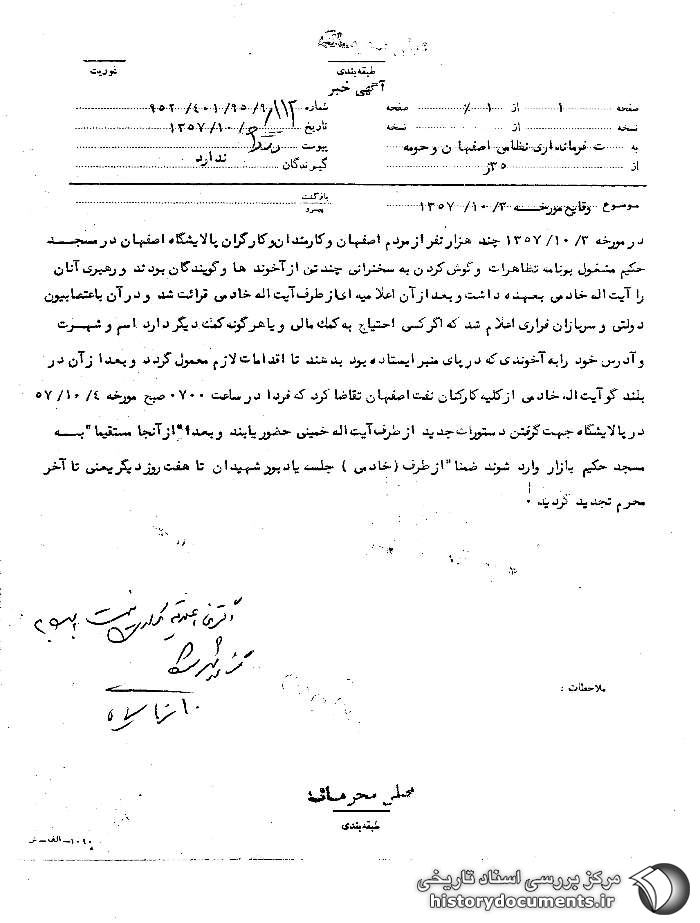 طبقه‌بندی
فوریت
آگهی خبر
صفحه ۱ از ۱٪ صفحه
شماره ۹۵۲/۴۰۱/۹۵/۹/۱۱۲
نسخه از نسخه
تاریخ ۱۳۵۷/۱۰/
به ت فرمانداری نظامی اصفهان وحومه
پیوست ندارد
از ۳۵ژ
گیرندگان
موضوع وقایع مورخه ۱۳۵۷/۱۰/۳
بازگشت
پیرو
درمورخه ۱۳۵۷/۱۰/۳ چند هزارنفر ازمردم اصفهان وکارمندان وکارگران پالایشگاه اصفهان درمسجد
حکیم مشغول بونامه تظاهرات وگوش کردن به سخنرانی چندتن ازآخوند ها وگویندگان بودند ورهبری آنان
را آیت اله خادمی بعهده داشت وبعدازآن اعلامیه ای ازطرف آیت اله خادمی قرائت شد ودرآن باعتصابیون
دولتی وسربازان فراری اعلام شد که اگرکسی احتیاج به کمک مالی ویاهرگونه کمک دیگردارد اسم وشهرت
وآدرس خود رابه آخوندی که درپای منبرایستاده بود بدهند تا اقدامات لازم معمول گردد وبعدازآن در
بلندگوآیت اله خادمی ازکلیه کارکنان نفت اصفهان تقاضاکرد که فردا درساعت ۰۷۰۰ صبح مورخه ۵۷/۱۰/۴
درپالایشگاه جهت گرفتن دستورات جدید ازطرف آیت اله خمینی حضوریابند وبعدا" ازآنجا مستقیما" به
مسجد حکیم بازار وارد شوند ضمنا" ازطرف (خادمی) جلسه یادبورشهیدان تا هفت روزدیگریعنی تا آخر
محرم تجدید گردید.
ملاحظات :
خیلی محرمانه
طبقه‌بندی
مرکز بررسی اسناد تاریخی
historydocuments.ir